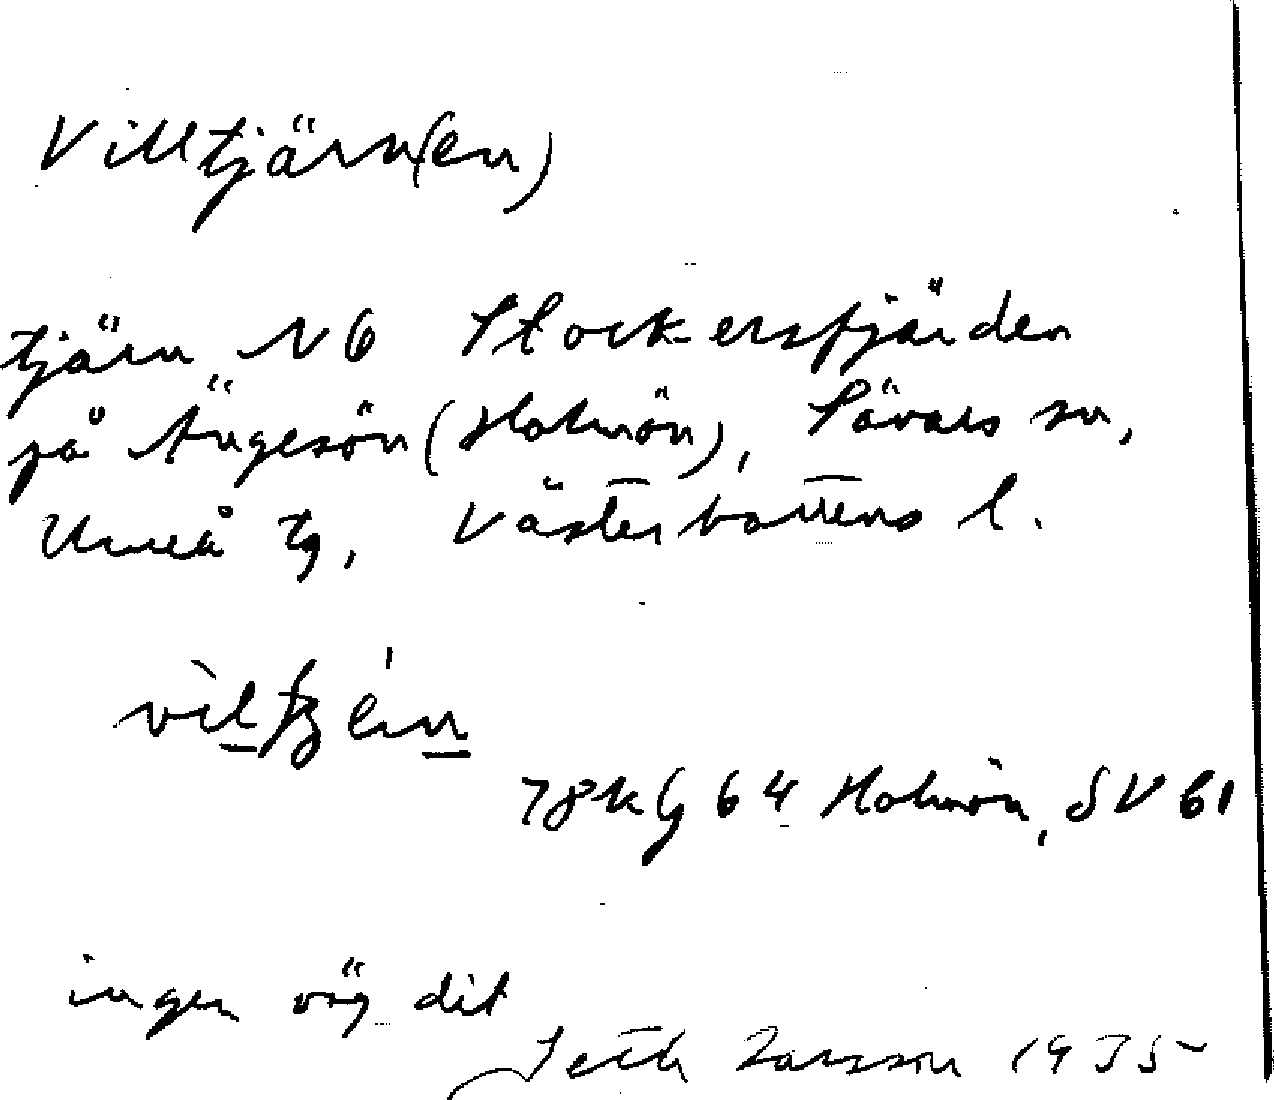 Villtjärn(en)
tjärn N 6 Stockersfjärden
på Ängesön (Holmön), Sävars sn,
Umeå tg, Västerbottens l.
78 kg 64 Holmön, SV 61
ingen väg dit
Seth Larsson 1935